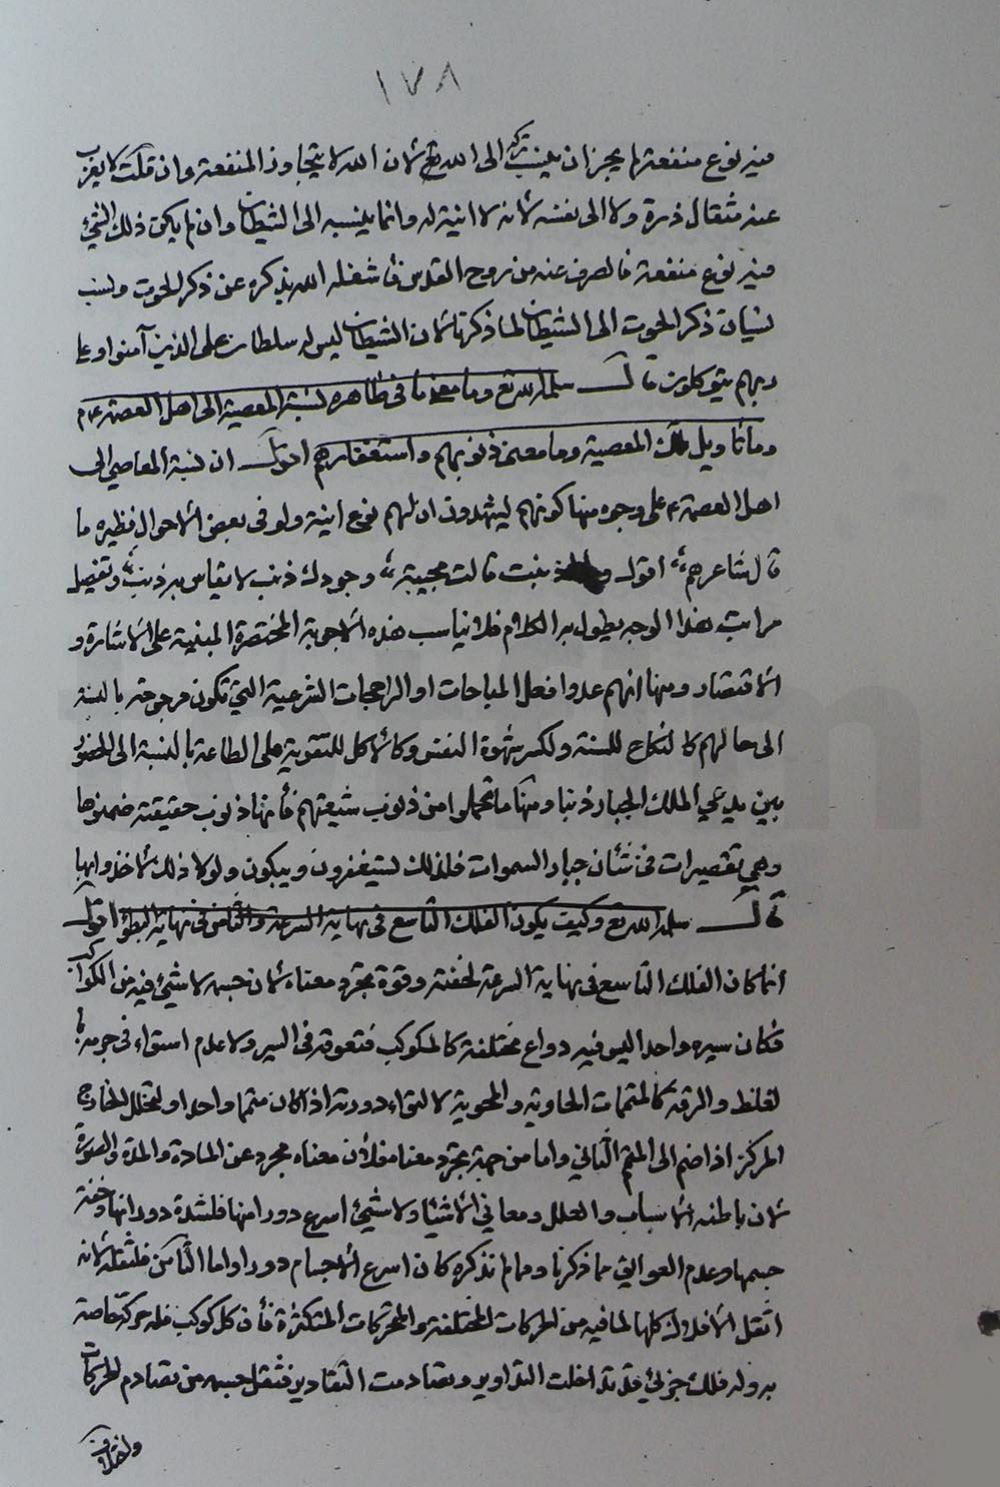 ١٧٨
فيه نوع منفعة لم يجز ان ينسب تركه الى الله تع لان الله لا يتجاوز المنفعة وان قلت لا يعزب
عنه مثقال ذرة ولا الى نفسه لانه لا انية له وانما ينسبه الى الشيطان وان لم يكن ذلك الشيء
فيه نوع منفعة فانصرف عنه من روح القدس فاشغله الله بذكره عن ذكر الحوت ونسب
نسيان ذكر الحوت الى الشيطان لما ذكرنا لان الشيطان ليس له سلطان على الذين آمنوا وعلى
ربهم يتوكلون قال سلمه الله تع وما معنى ما في ظاهره نسبة المعصية الى اهل العصمة ع م
وما تاويل تلك المعصية وما معنى ذنوبهم واستغفارهم اقول ان نسبة المعاصي الى
اهل العصمة ع على وجوه منها كونهم يشهدون ان لهم نوع انية ولو في بعض الاحوال نظيره ما
قال شاعرهم اقول وما اذنبت قالت مجيبة وجودك ذنب لا يقاس به ذنب وتفصيل
مراتب هذا الوجه يطول به الكلام فلا يناسب هذه الاجوبة المختصرة المبنية على الاشارة و
الاقتصار ومنها انهم عدوا فعل المباحات او الراجحات الشرعية التي تكون مرجوحة بالنسبة
الى حالهم كالنكاح للسنة ولكسر شهوة النفس وكالاكل للتقوية على الطاعة بالنسبة الى الحضور
بين يدي الملك الجبار ذنبا ومنها ما تحملوا من ذنوب شيعتهم فانها ذنوب حقيقة ضمنوها
وهي تقصيرات في شان جبار السموات فلذلك يستغفرون ويبكون ولولا ذلك لاخذوا بها
قال سلمه الله تع وكيف يكون الفلك التاسع في نهاية السرعة والثامن في نهاية البطؤ اقول
انما كان الفلك التاسع في نهاية السرعة لخفته وقوة تجرد معناه لان جسمه لا شيء فيه من الكواكب
فكان سيره واحدا ليس فيه دواع مختلفة كالمكوكب فتعوقه في السير ولا عدم استواء في جرمه با
لغلظ والرقة كالمتممات الحاوية والمحوية لالتواء دورته اذا كان متمما واحدا او لتخلل الخارج
المركز اذا ضم الى المتمم الثاني واما من جهة تجرد معناه فلان معناه مجرد عن المادة والمدة والصورة
لان باطنه الاسباب والعلل ومعاني الاشياء ولا شيء اسرع دورا منها فلشدة دورانها وخفة
جسمها وعدم العوائق مما ذكرنا ومما لم نذكره كان اسرع الاجسام دورا واما الثامن فلثقله لانه
اثقل الافلاك كلها لما فيه من الحركات المختلفة والمحركات المتكثرة فان كل كوكب فله حركة خاصة
به وله فلك جزئي قد تداخلت التداوير وتصادمت التقادير فثقل جسمه من تصادم الحركات
واختلاف